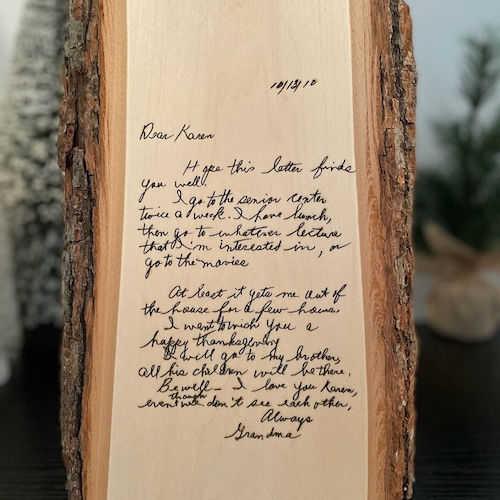 10/12/10
Dear Karen
Hope this letter finds
you well.
I go to the senior center
twice a week. I have lunch,
then go to whatever lecture
that I'm interested in, or
go to the movies
At least it gets me out of
the house for a few hours.
I want to wish you a
happy thanksgiving
I will go to my brother,
all his children will be there.
Be well - I love you Karen,
even though we don't see each other,
Always
Grandma